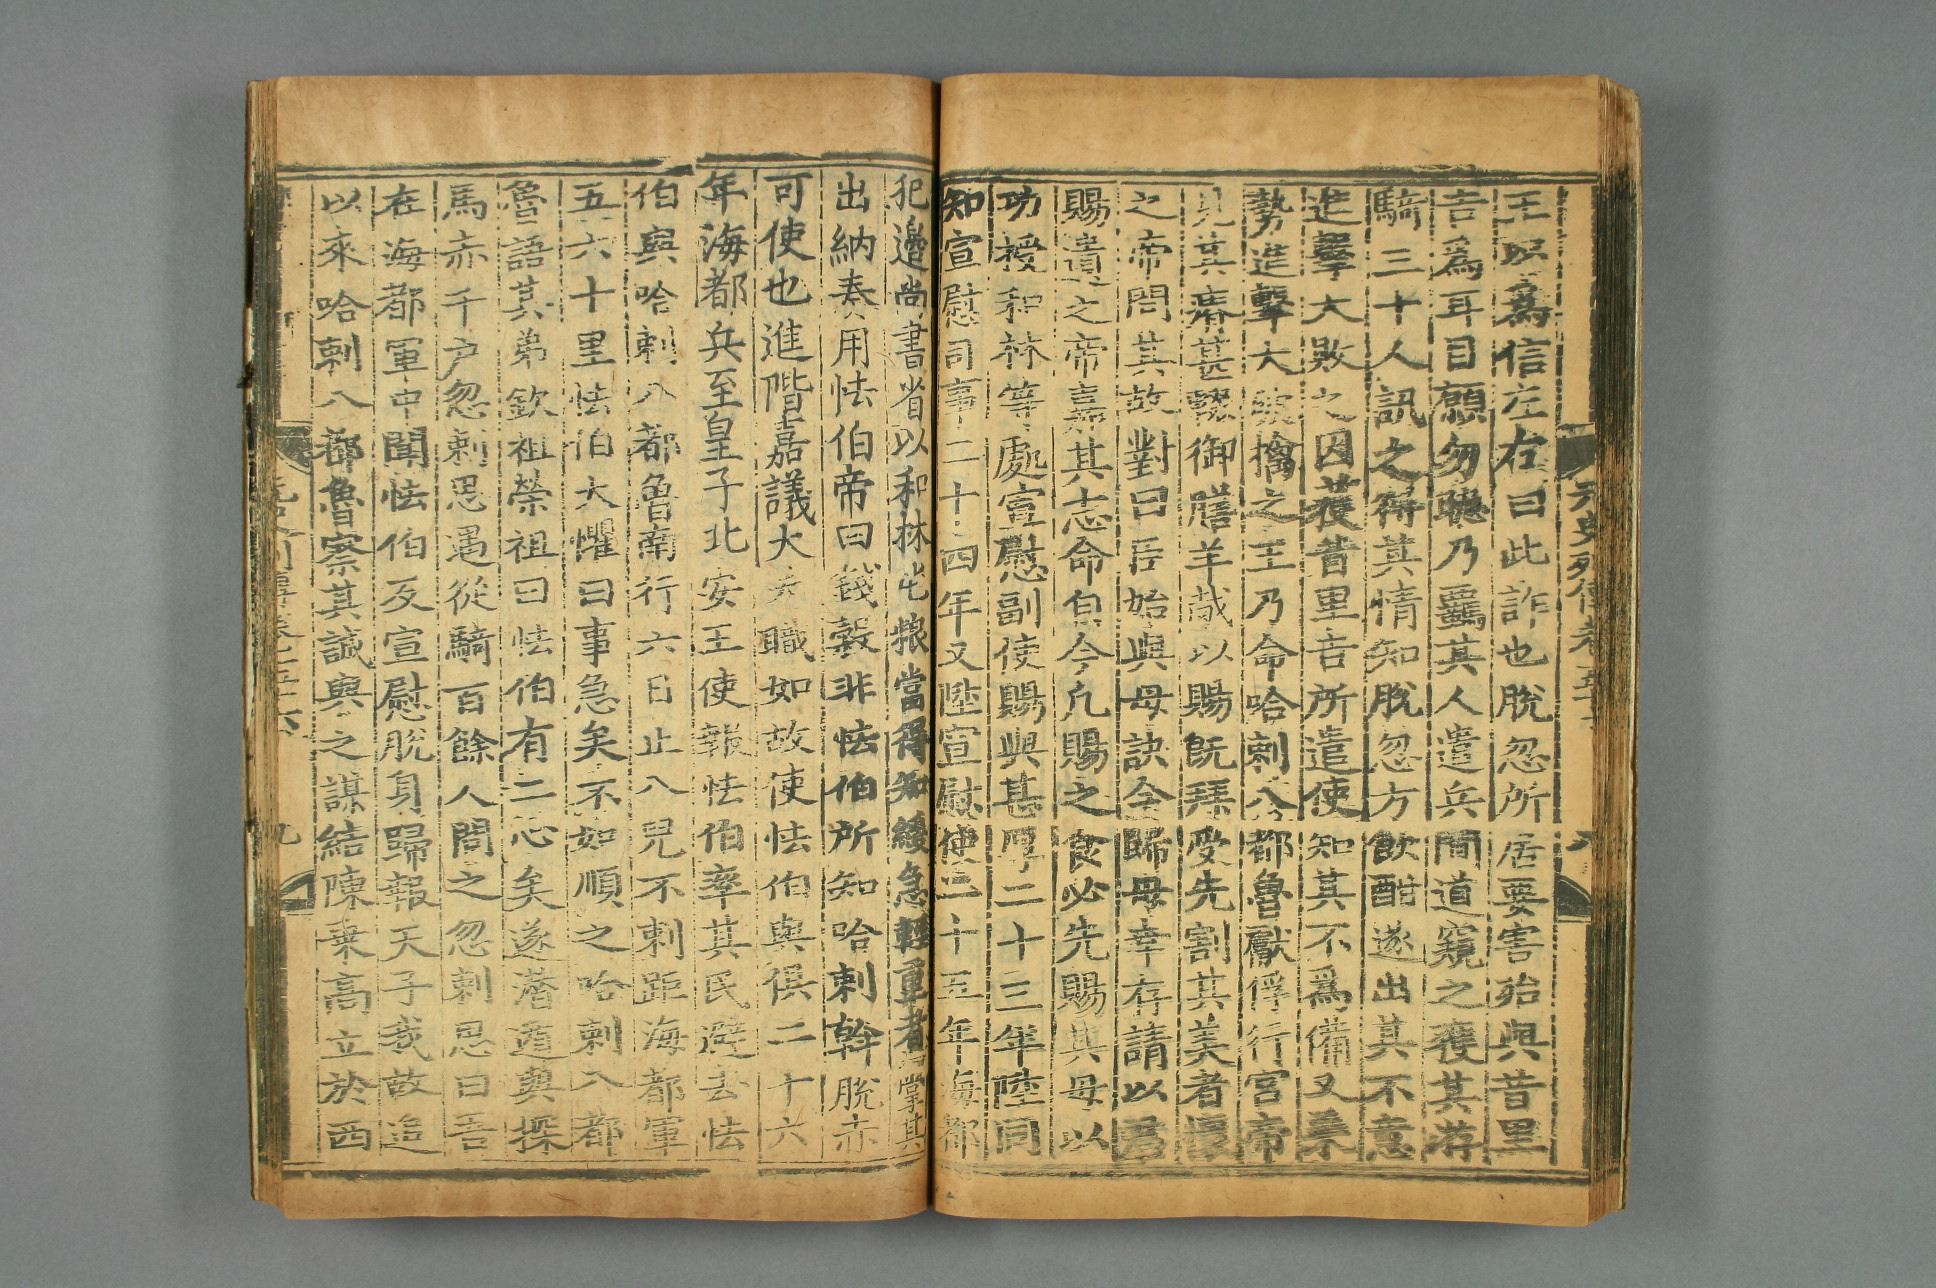 元史列傳卷
八
王以爲信左右曰此詐也脫忽所居要害殆與昔里
吉爲耳目願勿聽乃羈其人遣兵間道窺之獲其游
騎三十人訊之得其情知脫忽方飲酣遂出其不意
進擊大敗之因獲昔里吉所遣使知其不爲備又乗
勢進擊大破擒之王乃命哈剌八都魯獻俘行宮帝
見其瘠甚輟御膳羊胾以賜旣拜受先割其美者懷
之帝問其故對曰臣始與母訣今歸母幸存請以君
賜遺之帝嘉其志命自今凡賜之食必先賜其母以
功授和林等處宣慰副使賜與甚厚二十三年陞同
知宣慰司事二十四年又陞宣慰使二十五年海都
犯邊尚書省以和林屯粮當得知緩急輕重者掌其
出納奏用怯伯帝曰錢糓非怯伯所知哈剌斡脫赤
可使也進階嘉議大夫職如故使怯伯與俱二十六
年海都兵至皇子北安王使報怯伯率其民避去怯
伯與哈剌八都魯南行六日止八兒不剌距海都軍
五六十里怯伯大懼曰事急矣不如順之哈剌八都
魯語其弟欽祖榮祖曰怯伯有二心矣遂潛遁與探
馬赤千戶忽剌思遇從騎百餘人問之忽剌思曰吾
在海都軍中聞怯伯反宣慰脫身歸報天子我故追
以來哈剌八都魯察其誠與之謀結陳乗高立於西
九